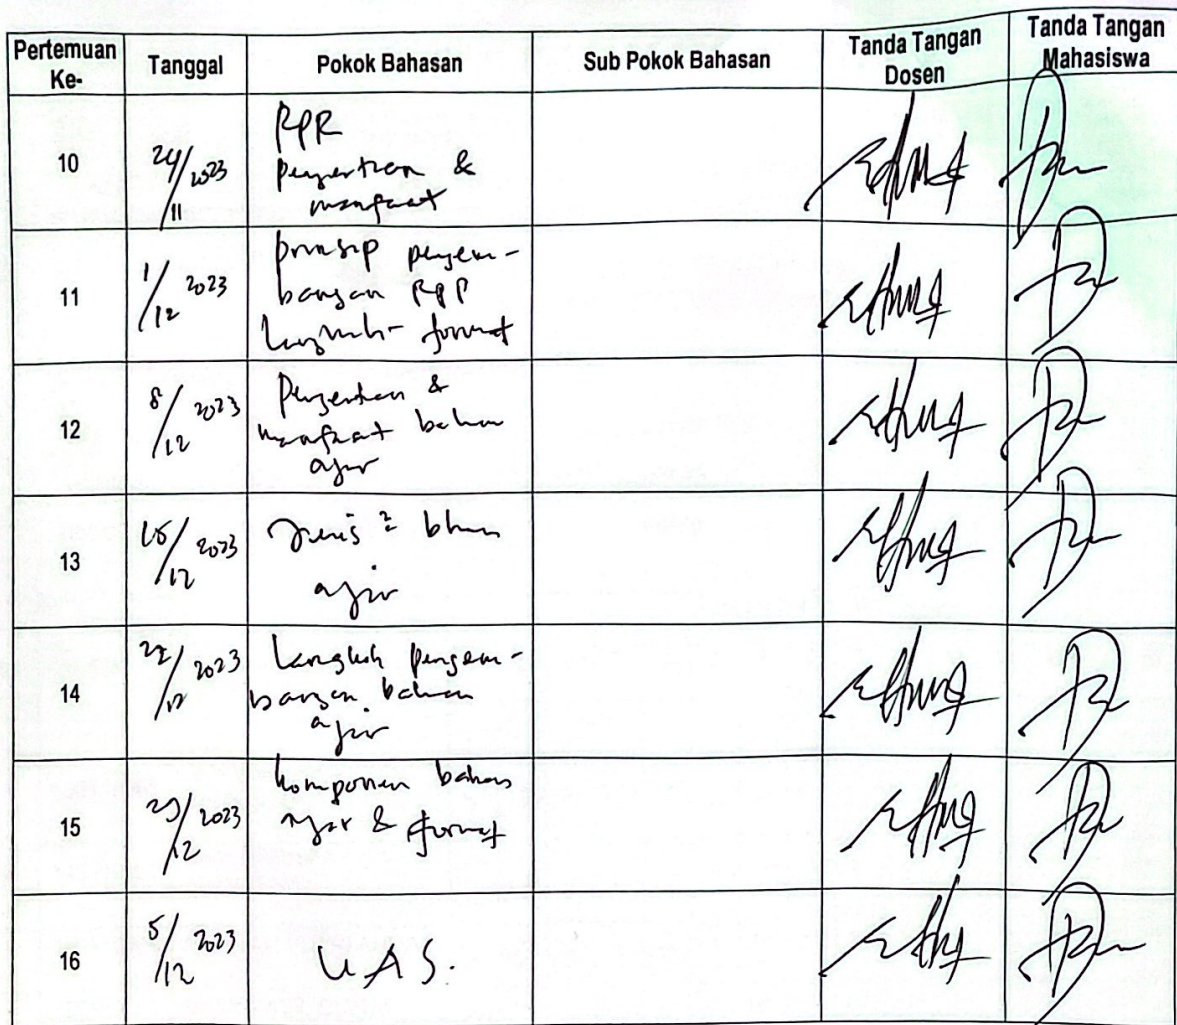 Pertemuan Ke- Tanggal Pokok Bahasan Sub Pokok Bahasan Tanda Tangan Dosen Tanda Tangan Mahasiswa
10 24/11 2023 RPR
Pengertian &
manfaat
11 1/12 2023 prinsip pengem-
bangan RPP
langkah- format
12 8/12 2023 Pengertian &
manfaat bahan
ajar
13 15/12 2023 Jenis ² bhan
ajar
14 22/12 2023 langkah pengem-
bangan bahan
ajar
15 29/12 2023 komponen bahan
ajar & format
16 5/12 2023 UAS.